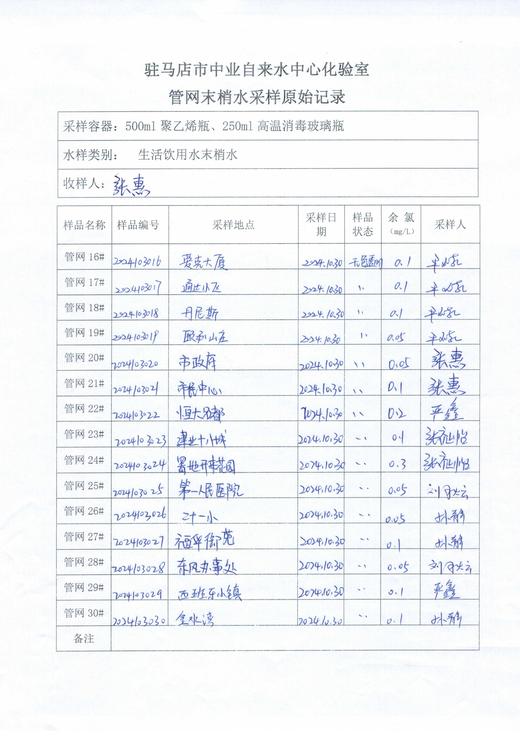 驻马店市中业自来水中心化验室
管网末梢水采样原始记录
采样容器：500ml 聚乙烯瓶、250ml 高温消毒玻璃瓶
水样类别： 生活饮用水末梢水
收样人：张惠
样品名称 样品编号 采样地点 采样日期 样品状态 余氯(mg/L) 采样人
管网 16# 2024103016 爱克大厦 2024.10.30 无色透明 0.1
管网 17# 2024103017 通达小区 2024.10.30 〃 0.1
管网 18# 2024103018 丹尼斯 2024.10.30 〃 0.1
管网 19# 2024103019 山庄 2024.10.30 〃 0.05
管网 20# 2024103020 市政府 2024.10.30 〃 0.05 张惠
管网 21# 2024103021 市民中心 2024.10.30 〃 0.1 张惠
管网 22# 2024103022 恒大名都 2024.10.30 〃 0.2 严鑫
管网 23# 2024103023 建业十八城 2024.10.30 〃 0.1
管网 24# 2024103024 置地开来花园 2024.10.30 〃 0.3
管网 25# 2024103025 第一人民医院 2024.10.30 〃 0.05
管网 26# 2024103026 二十一小 2024.10.30 〃 0.05 孙静
管网 27# 2024103027 福华御苑 2024.10.30 〃 0.1 孙静
管网 28# 2024103028 东风办事处 2024.10.30 〃 0.05
管网 29# 2024103029 西班牙小镇 2024.10.30 〃 0.1 严鑫
管网 30# 2024103030 金水湾 2024.10.30 〃 0.1 孙静
备注